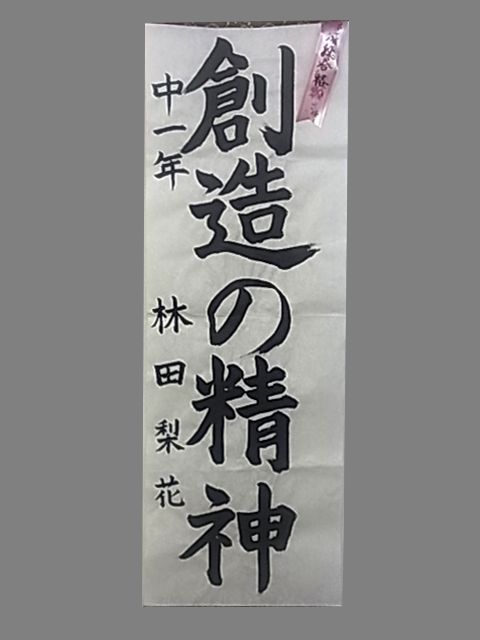 創造の精神
中一年 林田梨花